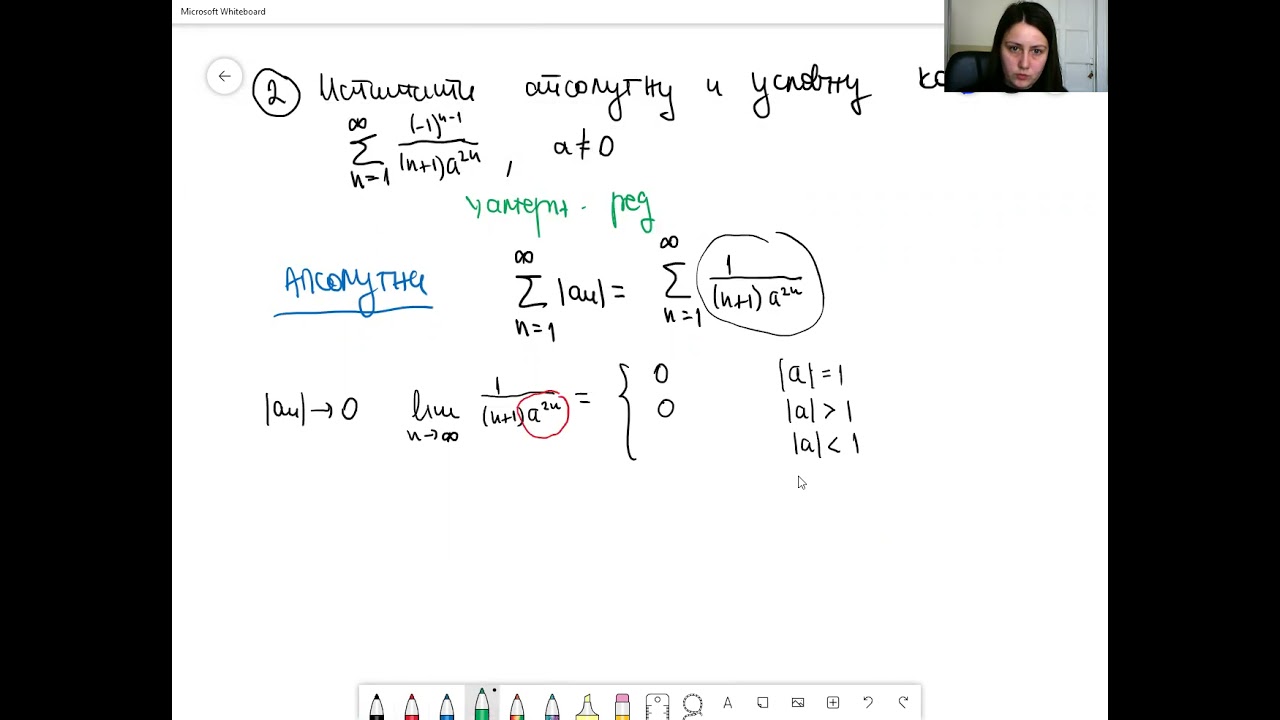 Microsoft Whiteboard
2 Испитати апсолутну и условну
∞ ∑ n=1 (-1)^{n-1} / (n+1)a^{2n} , a ≠ 0
ред
Апсолутна ∞ ∑ n=1 |an| = ∞ ∑ n=1 1 / (n+1) a^{2n}
|an| → 0 lim n→∞ 1 / (n+1) a^{2n} = { 0 |a| = 1
0 |a| > 1
|a| < 1
A